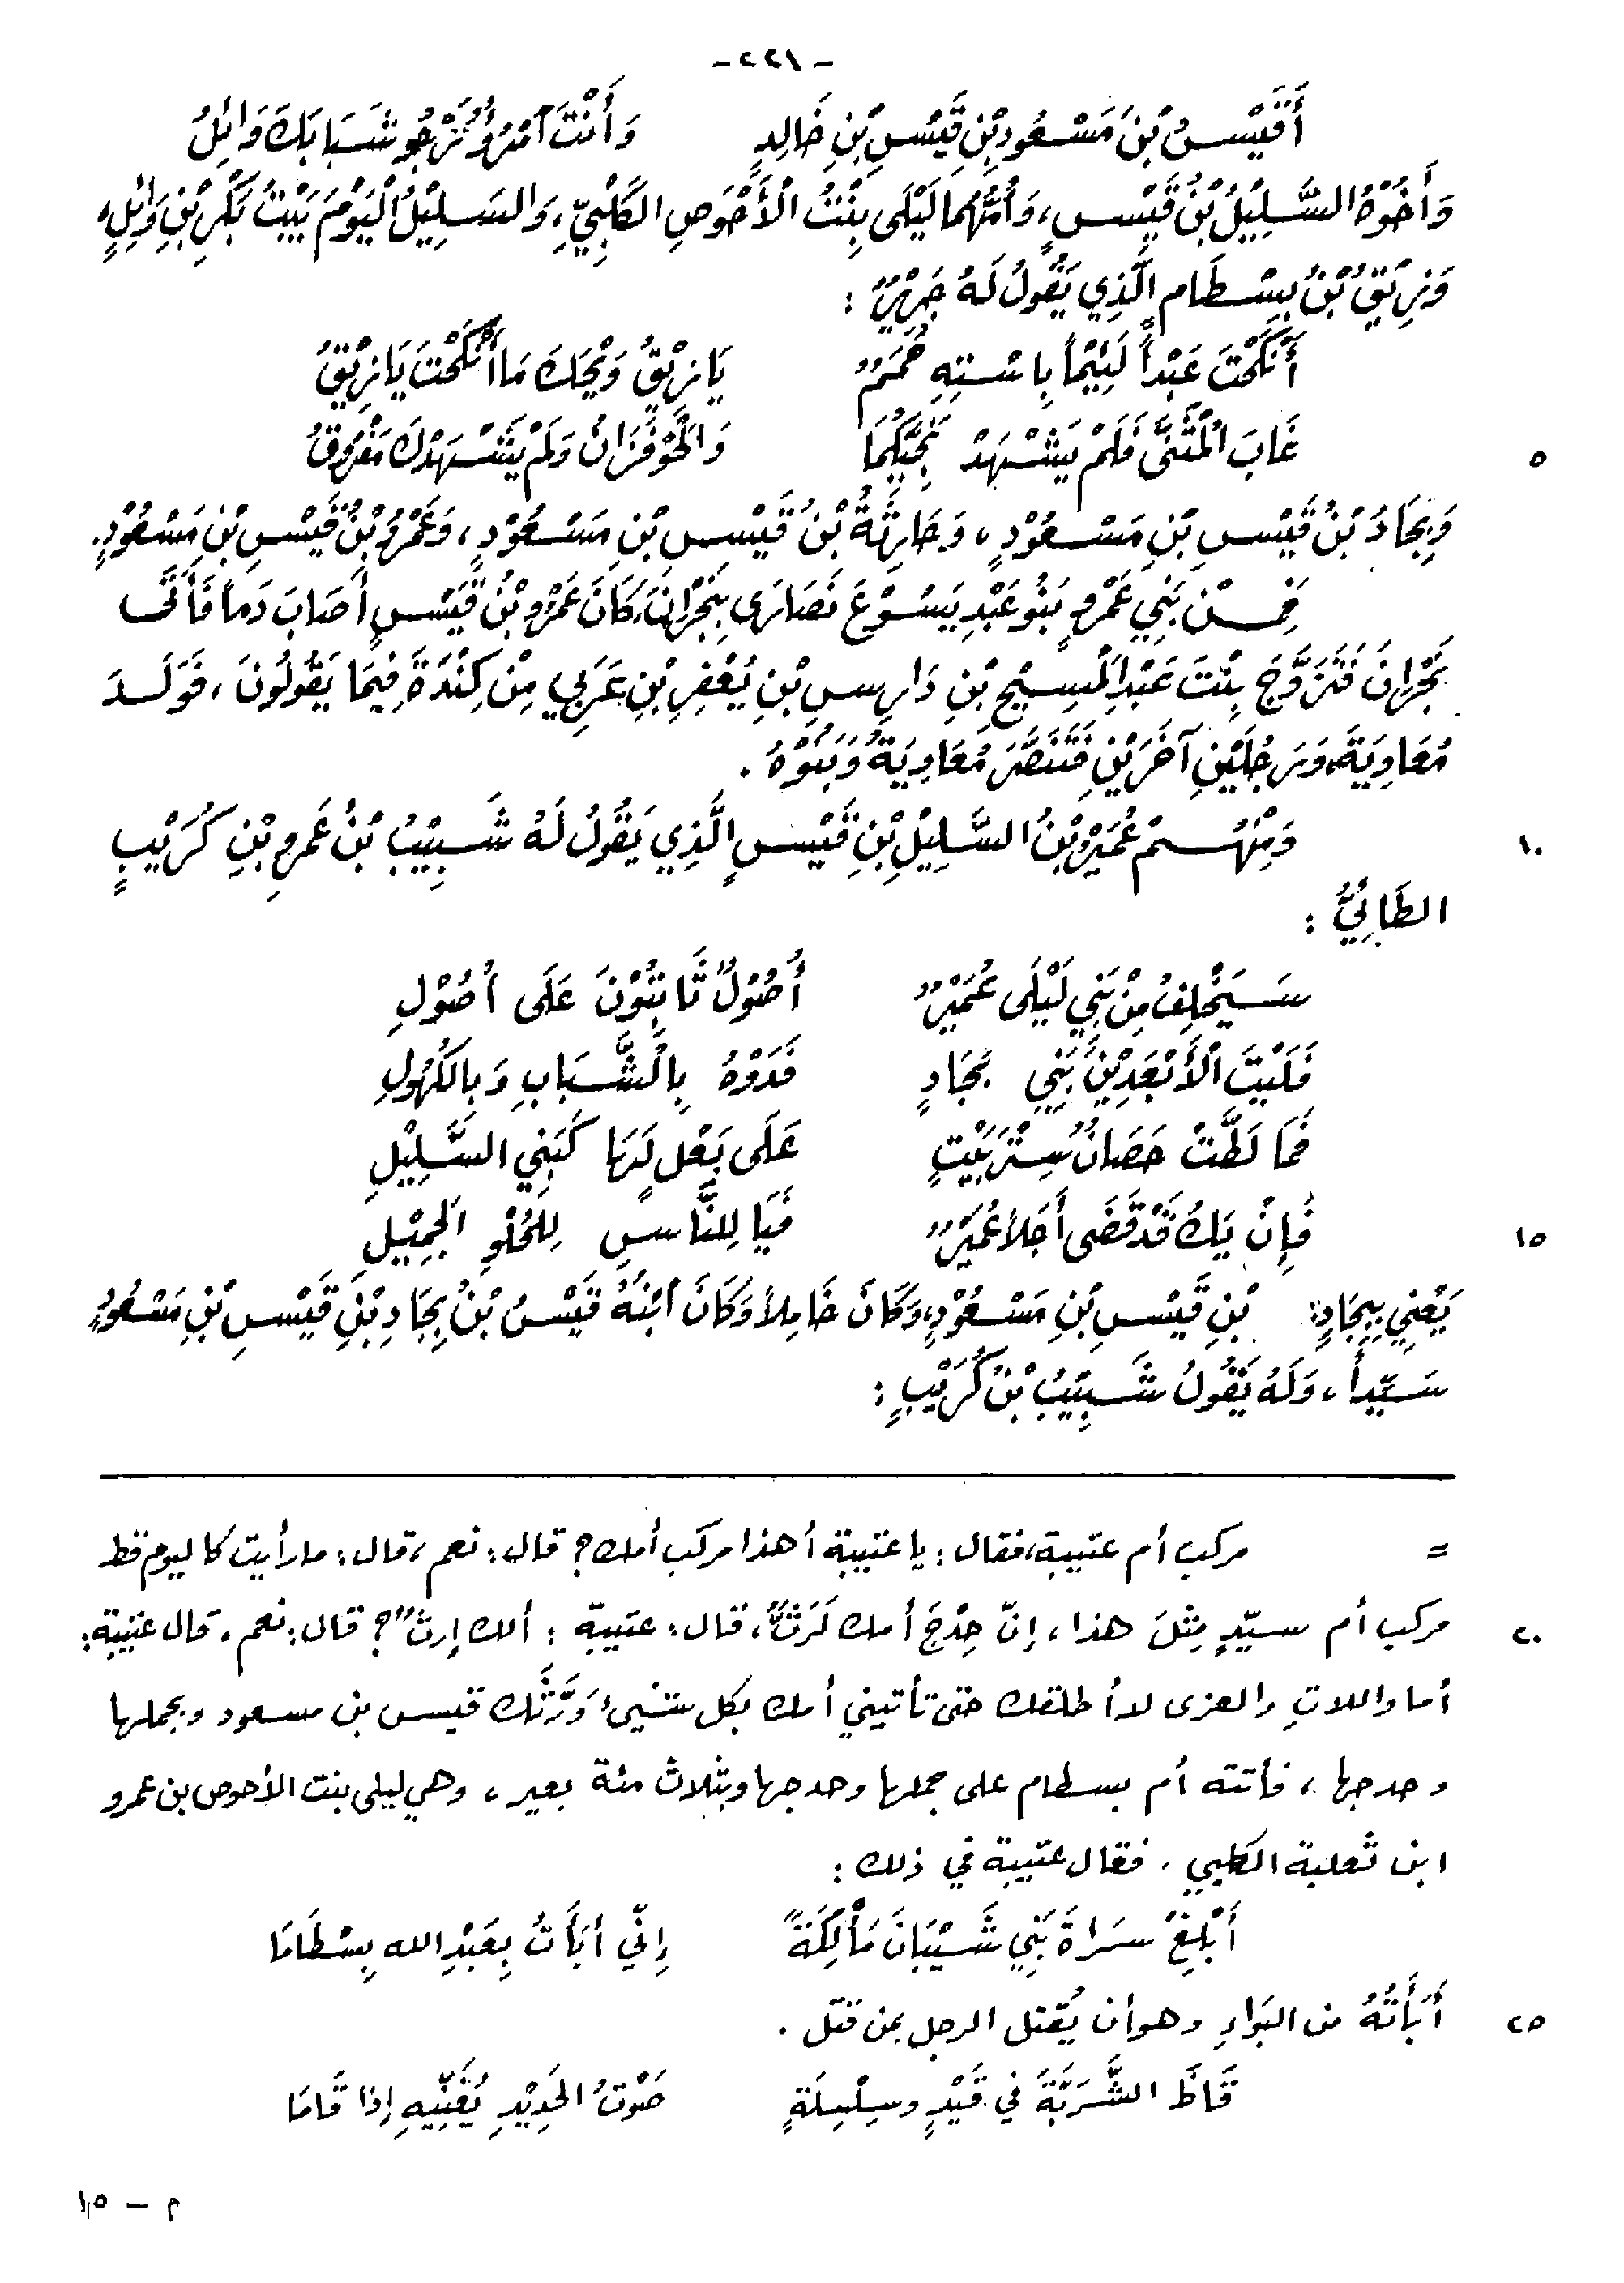 - ٢٢١ -
أَقَيْسُ بْنَ مَسْعُودِ بْنِ قَيْسِ بْنِ خَالِدٍ وَأَنْتَ آمْرُؤٌ نَرْجُو شَبَابَكَ وَائِلُ
وَأَخُوْهُ السَّلِيْلُ بْنُ قَيْسٍ، وَأُمُّهُما لَيْلَى بِنْتُ الْأَحْوَصِ الكَلْبِيِّ، وَالسَلِيْلُ الْيَوْمَ بَيْتُ بَكْرِ بْنِ وَائِلٍ،
وَزِيْقُ بْنُ بِسْطَام الَّذِي يَقُولُ لَهُ جَرِيْرٌ :
أَنْكَحْتَ عَبْداً لَئِيْماً بِاسْتِهِ حُمَمٌ يَا زِيْقُ وَيْحَكَ مَا أَنْكَحْتَ يَا زِيْقُ
٥ غَابَ الْمُثَنَّى فَلَمْ يَشْهَدْ نَجِيَّكُمَا وَالحَوْفَزَانُ وَلَمْ يَشْهَدْكَ مَفْرُوقُ
وَبِجَادُ بْنُ قَيْسِ بْنِ مَسْعُوْدٍ، وَحَارِثَةُ بْنُ قَيْسِ بْنِ مَسْعُوْدٍ، وَعَمْرُو بْنُ قَيْسِ بْنِ مَسْعُوْدٍ.
فَمِنْ بَنِي عَمْرٍو بَنُو عَبْدِ يَسُوْعَ نَصَارَى بِنَجْرَانَ، كَانَ عَمْرُو بْنُ قَيْسٍ أَصَابَ دَماً فَأَتَى
نَجْرَانَ فَتَزَوَّجَ بِنْتَ عَبْدِ الْمَسِيْحِ بْنِ دَارِسِ بْنِ يُعْفِرِ بْنِ عَرَبِي مِنْ كِنْدَةَ فِيْمَا يَقُولُونَ، فَوَلَدَ
مُعَاوِيَةَ، وَرَجُلَيْنِ آخَرَيْنِ فَتَنَصَّرَ مُعَاوِيَةُ وَبَنُوْهُ .
١٠ وَمِنْهُمْ عُمَيْرُ بْنُ السَّلِيْلِ بْنِ قَيْسٍ الَّذِي يَقُولُ لَهُ شَبِيْبُ بْنُ عَمْرِو بْنِ كُرَيْبٍ
الطَائِيُّ :
سَيَخْلِفُ مِنْ بَنِي لَيْلَى عُمَيْرٌ أُصُوْلٌ ثَابِتُوْنَ عَلَى أُصُوْلِ
فَلَيْتَ الْأَبْعَدِيْنَ بَنِي بِجَادٍ فَدَوْهُ بِالشَّبَابِ وَبِالكُهُولِ
فَمَا لَطَّتْ حَصَانٌ سِتْرَ بَيْتٍ عَلَى بَعْلٍ لَهَا كَبَنِي السَّلِيْلِ
١٥ فَإِنْ يَكُ قَدْ قَضَى أَجَلاً عُمَيْرٌ فَيَا لِلنَّاسِ لِلْحُلْوِ الجَمِيْلِ
يَعْنِي بِبِجَادٍ: بْنِ قَيْسِ بْنِ مَسْعُوْدٍ، وَكَانَ خَامِلاً وَكَانَ ابْنُهُ قَيْسُ بْنُ بِجَادِ بْنِ قَيْسِ بْنِ مَسْعُوْدٍ
سَيِّداً، وَلَهُ يَقُولُ شَبِيْبُ بْنُ كُرَيْبٍ :
= مركب أم عتيبة، فقال : يا عتيبة أهذا مركب أمك؟ قال: نعم، قال: ما رأيت كاليوم قط
٢٠ مركب أم سيّدٍ مِثلَ هذا، إنّ حِدْجَ أمك لَرَثٌّ، قال: عتيبة : ألك إرثٌ؟ قال: نعم. قال عتيبة:
أما واللاتِ والعزى لا أطلقك حتى تأتيني أمك بكل شيئ وَرَّثَك قيس بن مسعود وبجملها
وحدجها، فأتته أم بسطام على جملها وحدجها وبثلاث مئة بعير، وهي ليلى بنت الأحوص بن عمرو
ابن ثعلبة الكلبي . فقال عتيبة في ذلك :
أَبْلِغْ سَرَاةَ بَنِي شَيْبَانَ مَأْلُكَةً إِنِّي أَبَأْتُ بِعَبْدِ الله بِسْطَامَا
٢٥ أَبَأْتُهُ من البَوَاءِ وهو أن يُقتل الرجل بمن قتل .
قَاظَ الشَّرَبَّةَ في قَيْدٍ وسِلْسِلَةٍ صَوْتُ الحَدِيْدِ يُغَنِّيهِ إذا قَامَا
م - ١٥